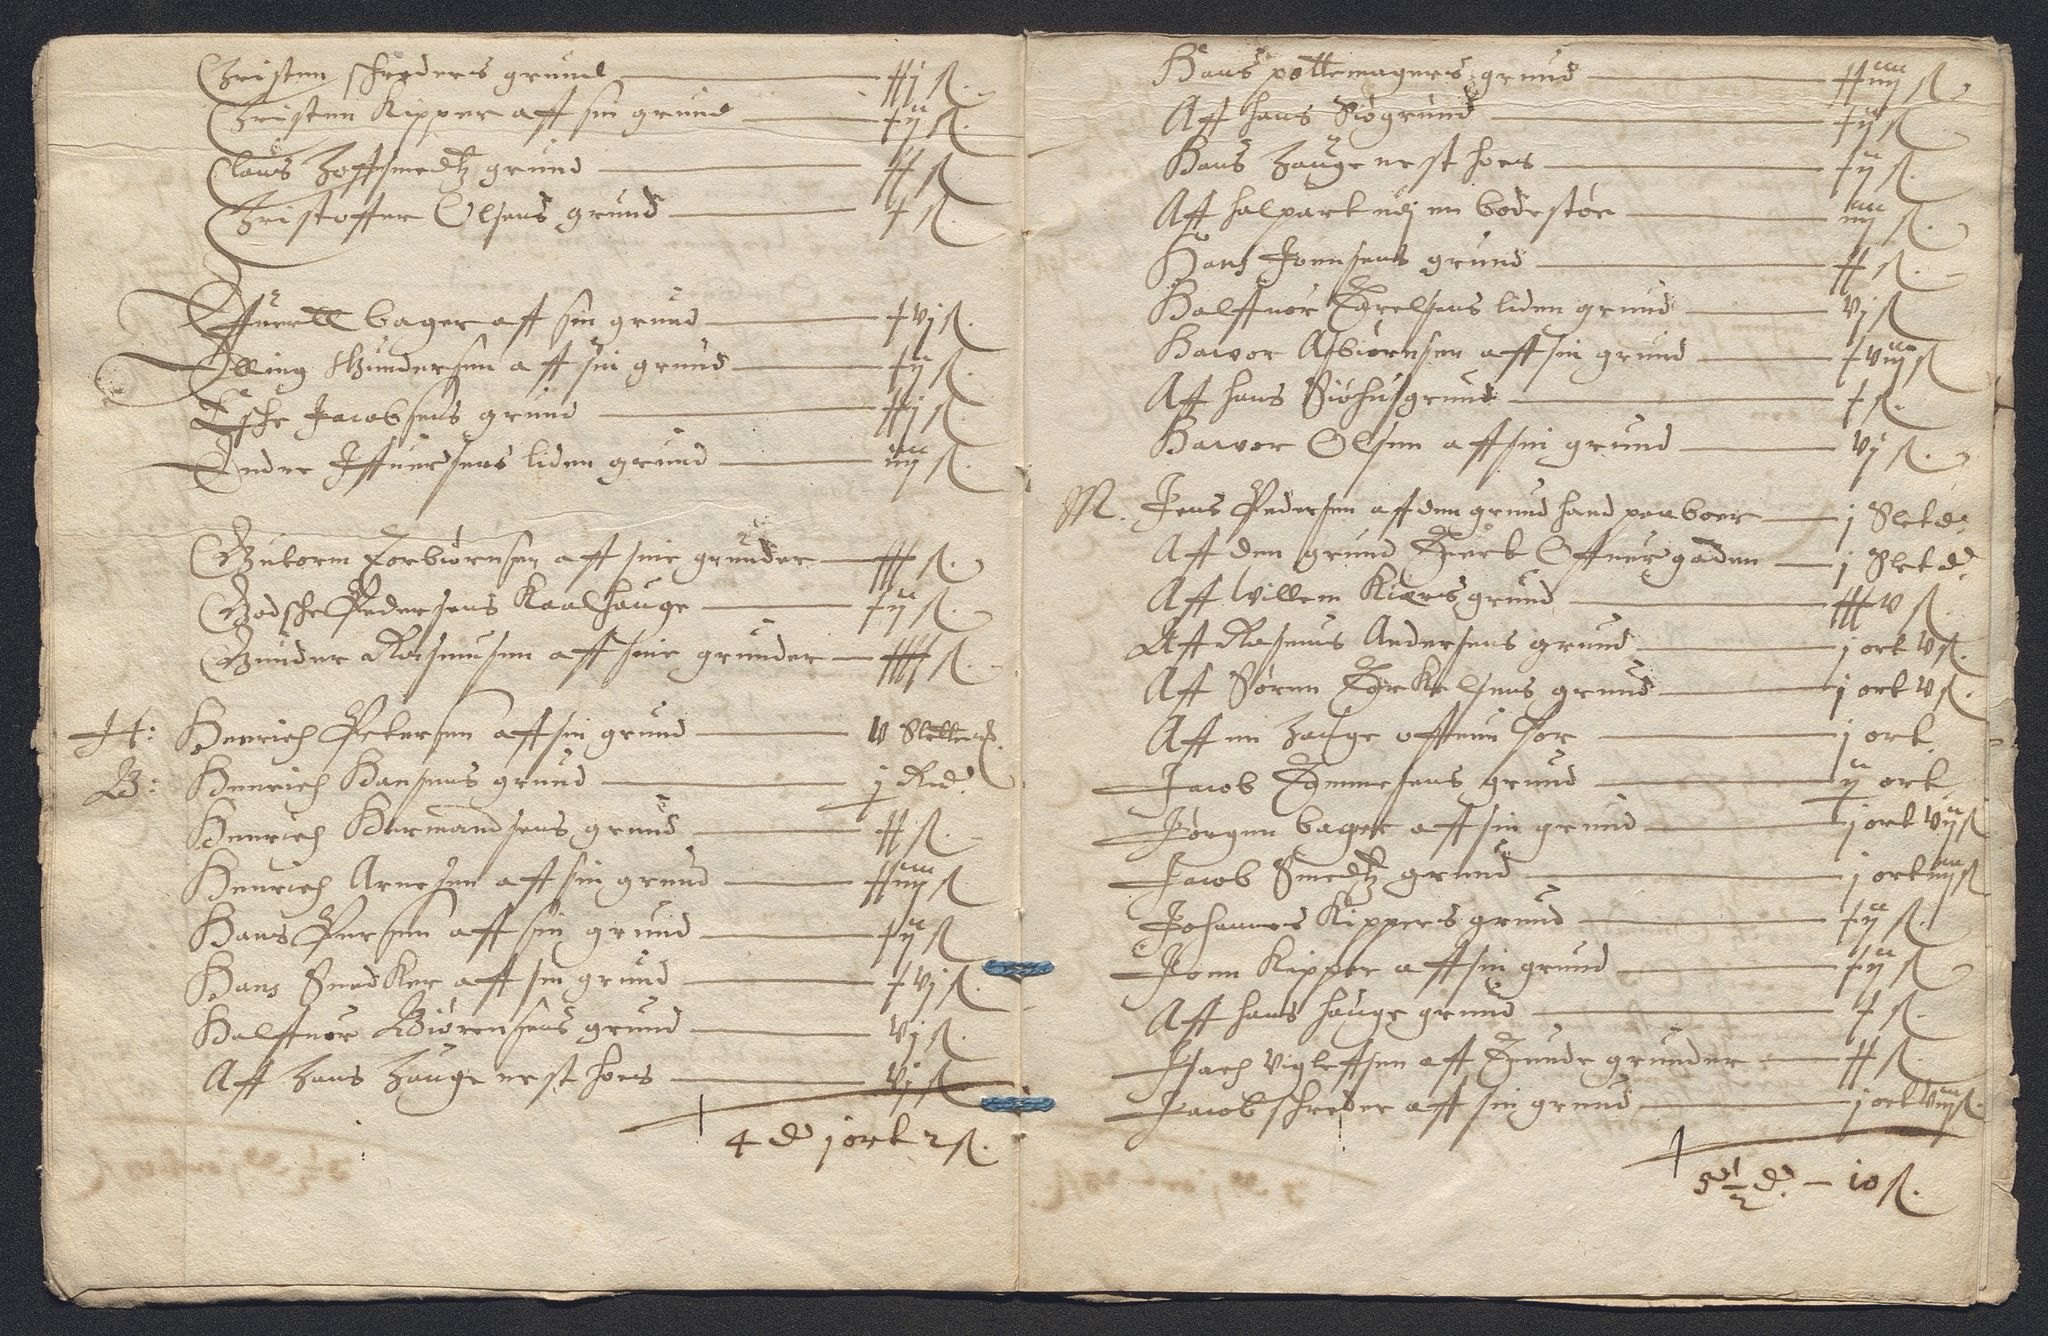 Christen schreders grund — xxj ß.
Christen Kipper aff sin grund — xij ß.
Claus Hoffsmedtz grund — xx ß.
Christoffer Olsens grund — x ß.
Effuertt bager aff sin grund — xvj ß.
Elling Gundersen aff sin grund — xij ß.
Esche Jacobsens grund — xxj ß.
Ender Iffuersens liden grund — iiij ß.
Gutorm Torbiørnsen aff sine grunder — xxx ß.
Godsche Pedersens Kaalhauge — xij ß.
Gunder Rasmusen aff sine grunder — xxxx ß.
H: Henrich Petersen aff sin grund — v Slette d.
B: Henrich Hansens grund — j Rd.
Henrich Hermandsens grund — xx ß.
Henrich Arnesen aff sin grund — xxiiij ß
Hans Persen aff sin grund — xij ß
Hans Snedker aff sin grund — xvj ß.
Halffuor Biørensens grund — vj ß.
Aff Hans Hauge nest hoes — vj ß
4 d j ort 2 ß.
Hans pottemagers grund — xxiiij ß.
Aff hans Siøgrund — xij ß
Hans Hauge nest hoes — xij ß.
Aff halpart udj en bodestøe — iiij ß.
Hans Joensens grund — xx ß.
Halffuor Torelsens liden grund — vj ß
Hawor Asbiørnsen aff sin grund — xviij ß
Aff hans Siøhus grund — x ß.
Hawor Olsen aff sin grund — vj ß.
M. Jens Pedersen aff den grund hand paaboer — j Slet d.
Aff den grund Tuert Offuer gaden — j Slet d.
Aff Willem Kiers grund — xxxv ß.
Aff Rasmus Andersens grund — j ort v ß.
Aff Søren Terkelsens grund — j ort v ß.
Aff en Hauge offuen for — j ort.
Jacob Tommesens grund — ij ort
Jørgen bager aff sin grund — j ort vij ß
Jacob Smedtz grund — j ort iiij ß
Johannes Kippers grund — xij ß.
Jonn Kipper aff sin grund — xij ß
Aff hans hauge grund — x ß.
Isach Vigleffsen aff Tuende grunder — xx ß.
Jacob schreder aff sin grund — j ort viij ß.
5 1/2 d. — 10 ß.